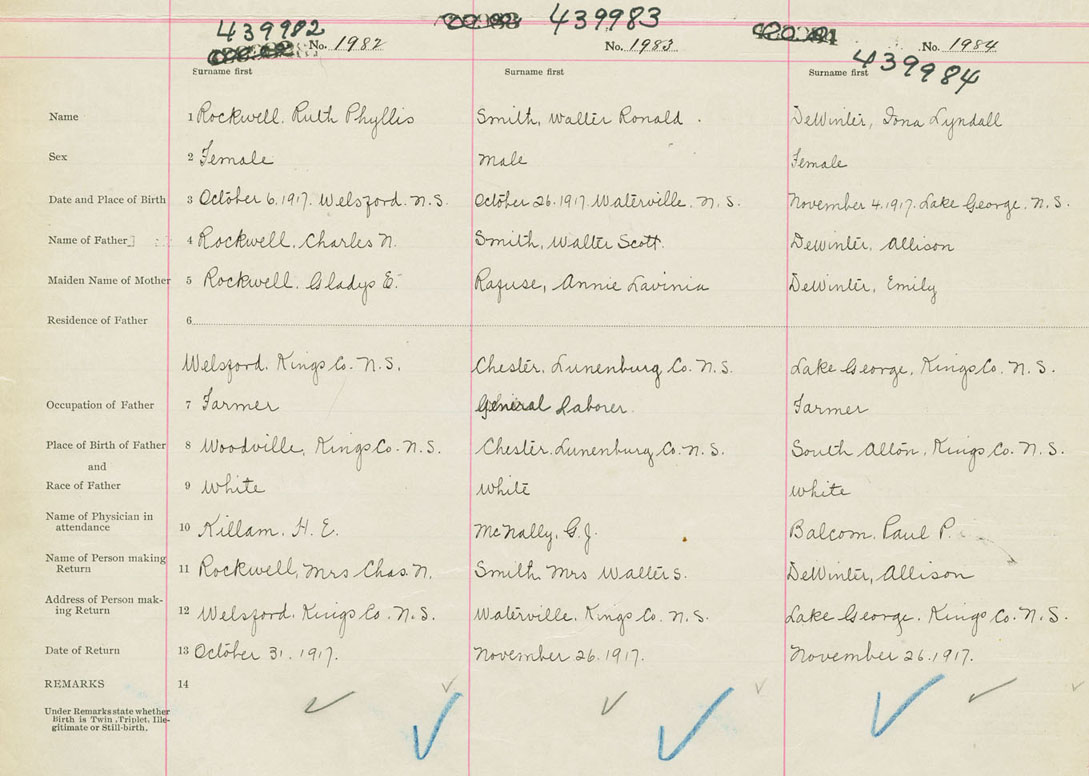 439982 439983
No. 1982 No. 1983 No. 1984
439984
Surname first Surname first Surname first
Name 1 Rockwell, Ruth Phyllis Smith, Walter Ronald. DeWinter, Iona Lyndall
Sex 2 Female Male Female
Date and Place of Birth 3 October 6. 1917. Welsford. N.S. October 26. 1917. Waterville. N.S. November 4. 1917. Lake George, N.S.
Name of Father 4 Rockwell, Charles N. Smith, Walter Scott. DeWinter, Allison
Maiden Name of Mother 5 Rockwell. Gladys E. Rafuse, Annie Lavinia DeWinter, Emily
Residence of Father 6
Welsford, Kings Co. N.S. Chester, Lunenburg Co. N.S. Lake George, Kings Co. N.S.
Occupation of Father 7 Farmer General Laborer. Farmer
Place of Birth of Father 8 Woodville, Kings Co. N.S. Chester. Lunenburg Co. N.S. South Alton, Kings Co. N.S.
and
Race of Father 9 White White White
Name of Physician in
attendance 10 Killam, H. E. McNally, G.J. Balcom, Paul P.
Name of Person making
Return 11 Rockwell, Mrs Chas. N. Smith, Mrs Walter S. DeWinter, Allison
Address of Person mak-
ing Return 12 Welsford, Kings Co. N.S. Waterville, Kings Co. N.S. Lake George, Kings Co. N.S.
Date of Return 13 October 31. 1917. November 26. 1917. November 26. 1917.
REMARKS 14
Under Remarks state whether
Birth is Twin, Triplet, Ille-
gitimate or Still-birth.